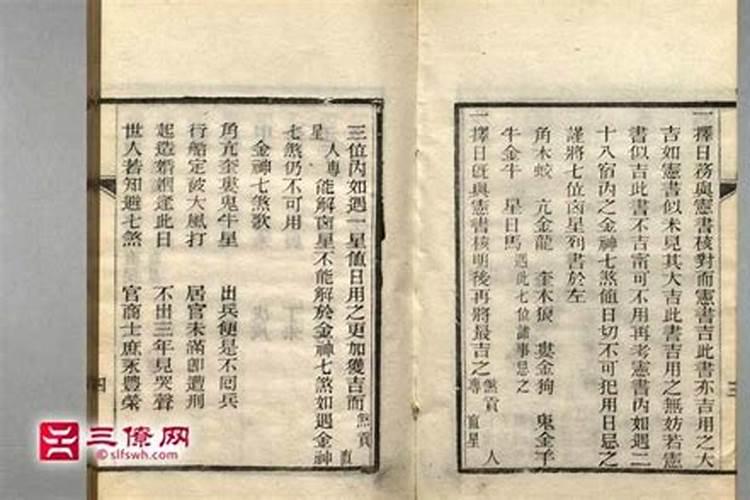 一擇日務與憲書核對而憲書吉此書亦吉用之大
吉如憲書似未見其大吉此書吉用之無妨若憲
書似吉此書不吉甯可不用再考憲書內如遇二
十八宿內之金神七煞値日切不可犯用日忌之
謹將七位凶星列書於左
角木蛟 亢金龍 奎木狼 婁金狗 鬼金羊
牛金牛 星日馬 遇此七位諸事忌之
一擇日旣與憲書核明後再將最吉之煞貢 人
專 直星
三
三位內如遇一星値日用之更加獲吉而煞貢 直
星 人專 能解凶星不能解於金神七煞如遇金神
七煞仍不可用
金神七煞歌
角亢奎婁鬼牛星 出兵便是不囘兵
行船定被大風打 居官未滿卽遭刑
起造婚姻逢此日 不出三年見哭聲
世人若知避七煞 官商士庶永豐榮
四
三僚网
©slfswh.com